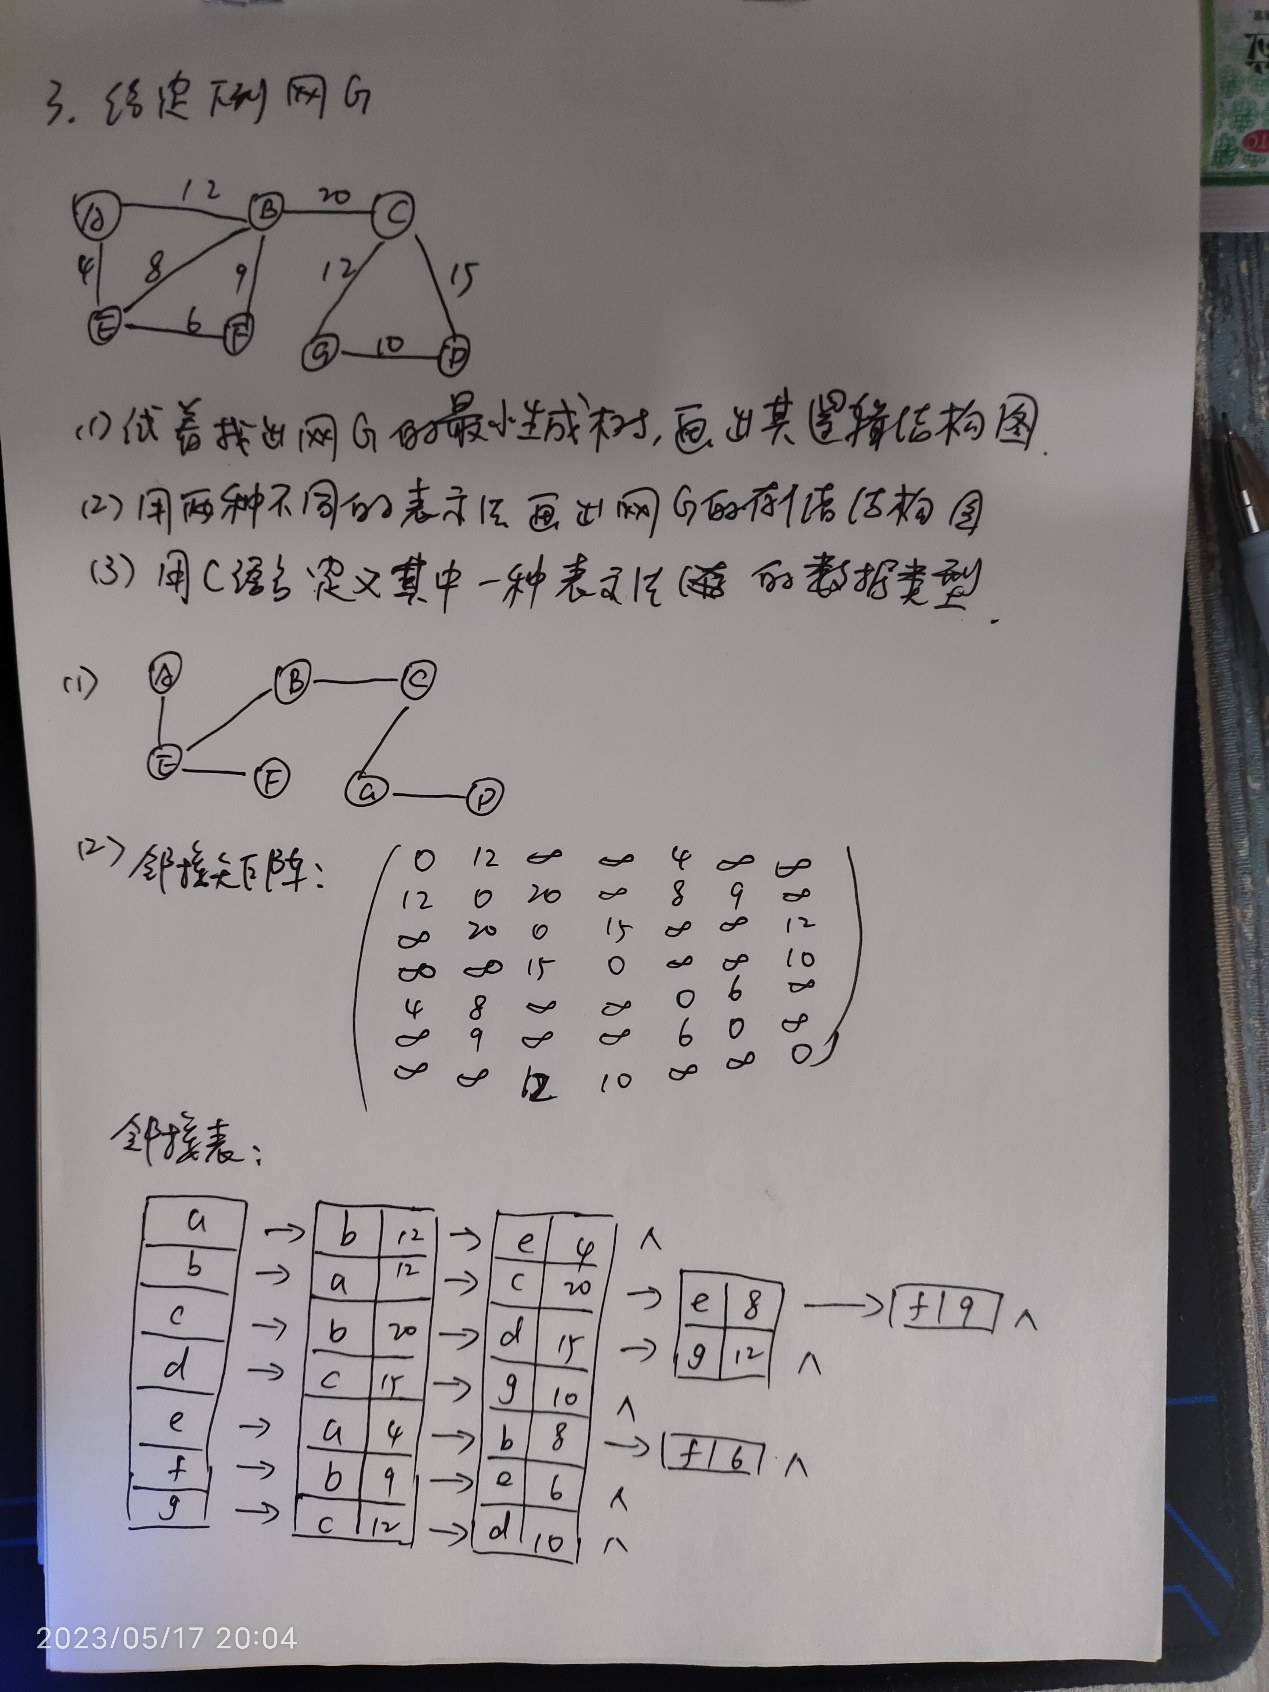 3. 给定下列网G
A 12 B 20 C
4 8 9 12 15
E 6 F G 10 D
(1) 试着找出网G的最小生成树,画出其逻辑结构图.
(2) 用两种不同的表示法画出网G的存储结构图
(3) 用C语言定义其中一种表示法 的数据类型.
(1) A B C
E F G D
(2) 邻接矩阵:
0 12 ∞ ∞ 4 ∞ ∞
12 0 20 ∞ 8 9 ∞
∞ 20 0 15 ∞ ∞ 12
∞ ∞ 15 0 ∞ ∞ 10
4 8 ∞ ∞ 0 6 ∞
∞ 9 ∞ ∞ 6 0 ∞
∞ ∞ 12 10 ∞ ∞ 0
邻接表:
a → b 12 → e 4 ∧
b → a 12 → c 20 → e 8 → f 9 ∧
c → b 20 → d 15 → g 12 ∧
d → c 15 → g 10 ∧
e → a 4 → b 8 → f 6 ∧
f → b 9 → e 6 ∧
g → c 12 → d 10 ∧
2023/05/17 20:04